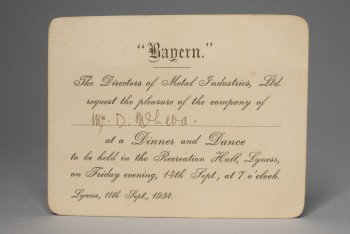 "Bayern."
The Directors of Metal Industries, Ltd.
request the pleasure of the company of
Mr. D.
at a Dinner and Dance
to be held in the Recreation Hall, Lyness,
on Friday evening, 14th Sept., at 7 o'clock.
Lyness, 11th Sept., 1934.